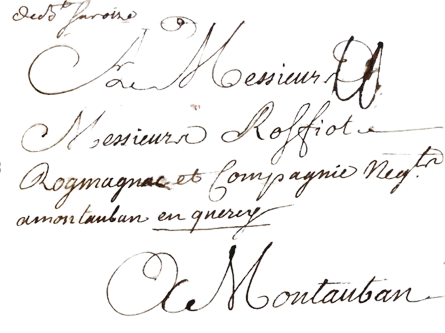 A Messieurs
Messieurs Roffiot
Rogmagnac et Compagnie Neg.ts
amontauban en quercy
A Montauban